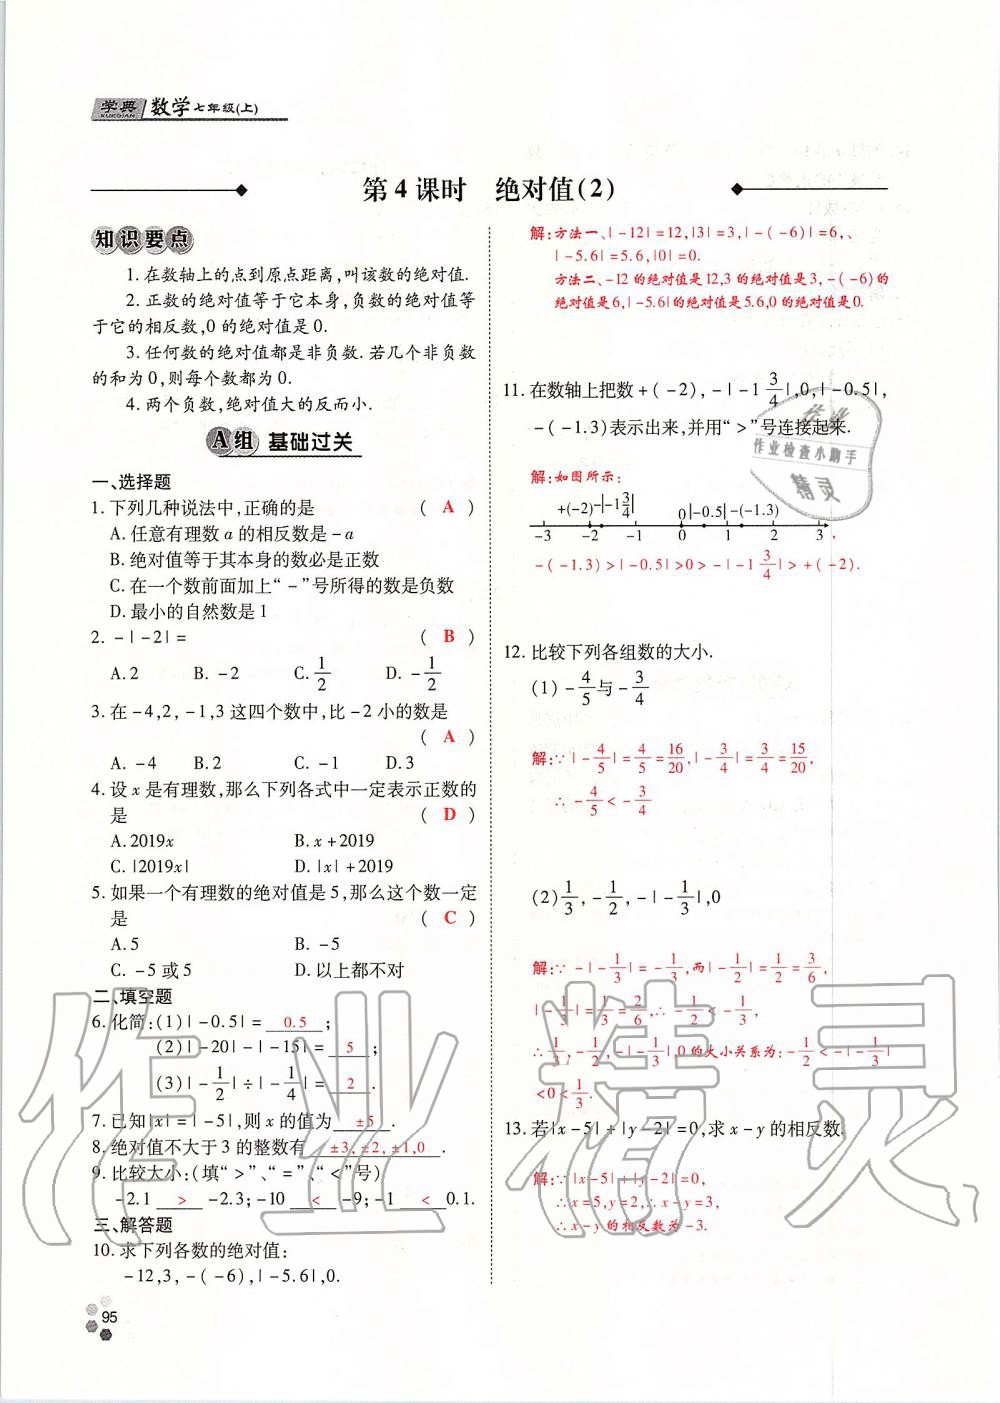 学典 数学 七年级(上)
XUEDIAN
第4课时 绝对值(2)
知识要点
1. 在数轴上的点到原点距离,叫该数的绝对值.
2. 正数的绝对值等于它本身,负数的绝对值等
于它的相反数,0 的绝对值是0.
3. 任何数的绝对值都是非负数. 若几个非负数
的和为0,则每个数都为0.
4. 两个负数,绝对值大的反而小.
A组 基础过关
一、选择题
1. 下列几种说法中,正确的是 ( A )
A. 任意有理数 a 的相反数是 -a
B. 绝对值等于其本身的数必是正数
C. 在一个数前面加上“-”号所得的数是负数
D. 最小的自然数是 1
2. -|-2| = ( B )
A. 2 B. -2 C. 1/2 D. -1/2
3. 在 -4,2,-1,3 这四个数中,比 -2 小的数是
( A )
A. -4 B. 2 C. -1 D. 3
4. 设 x 是有理数,那么下列各式中一定表示正数的
是 ( D )
A. 2019x B. x+2019
C. |2019x| D. |x|+2019
5. 如果一个有理数的绝对值是 5,那么这个数一定
是 ( C )
A. 5 B. -5
C. -5 或 5 D. 以上都不对
二、填空题
6. 化简:(1)|-0.5| = 0.5 ;
(2)|-20|-|-15| = 5 ;
(3)|-1/2|÷|-1/4| = 2 .
7. 已知|x|=|-5|,则 x 的值为 ±5 .
8. 绝对值不大于 3 的整数有 ±3,±2,±1,0 .
9. 比较大小:(填“>”、“=”、“<”号)
-2.1 > -2.3; -10 < -9; -1 < 0.1.
三、解答题
10. 求下列各数的绝对值:
-12,3,-(-6),|-5.6|,0.
95
解:方法一、|-12|=12,|3|=3,|-(-6)|=6,、
|-5.6|=5.6,|0|=0.
方法二、-12的绝对值是12,3的绝对值是3,-(-6)的
绝对值是6,|-5.6|的绝对值是5.6,0的绝对值是0.
11. 在数轴上把数 +(-2),-|-1 3/4|,0,|-0.5|,
-(-1.3)表示出来,并用“>”号连接起来.
解:如图所示:
+(-2) -|-1 3/4| 0 |-0.5| -(-1.3)
-3 -2 -1 0 1 2 3 ,
-(-1.3)>|-0.5|>0>-|-1 3/4|>+(-2).
12. 比较下列各组数的大小.
(1) -4/5 与 -3/4
解:∵|-4/5|=4/5=16/20,|-3/4|=3/4=15/20,
∴ -4/5 < -3/4
(2) 1/3,-1/2,-|-1/3|,0
解:∵ -|-1/3|=-1/3,而|-1/2|=1/2=3/6,
|-1/3|=1/3=2/6,∴ -1/2<-1/3,
∴ 1/3,-1/2,-|-1/3|,0的大小关系为:-1/2<-|-1/3|
<0<1/3.
13. 若|x-5|+|y-2|=0,求 x-y 的相反数.
解:∵|x-5|+|y-2|=0,
∴x=5,y=2,∴x-y=3,
∴x-y的相反数为-3.
作业
作业检查小助手
精灵
作业精灵